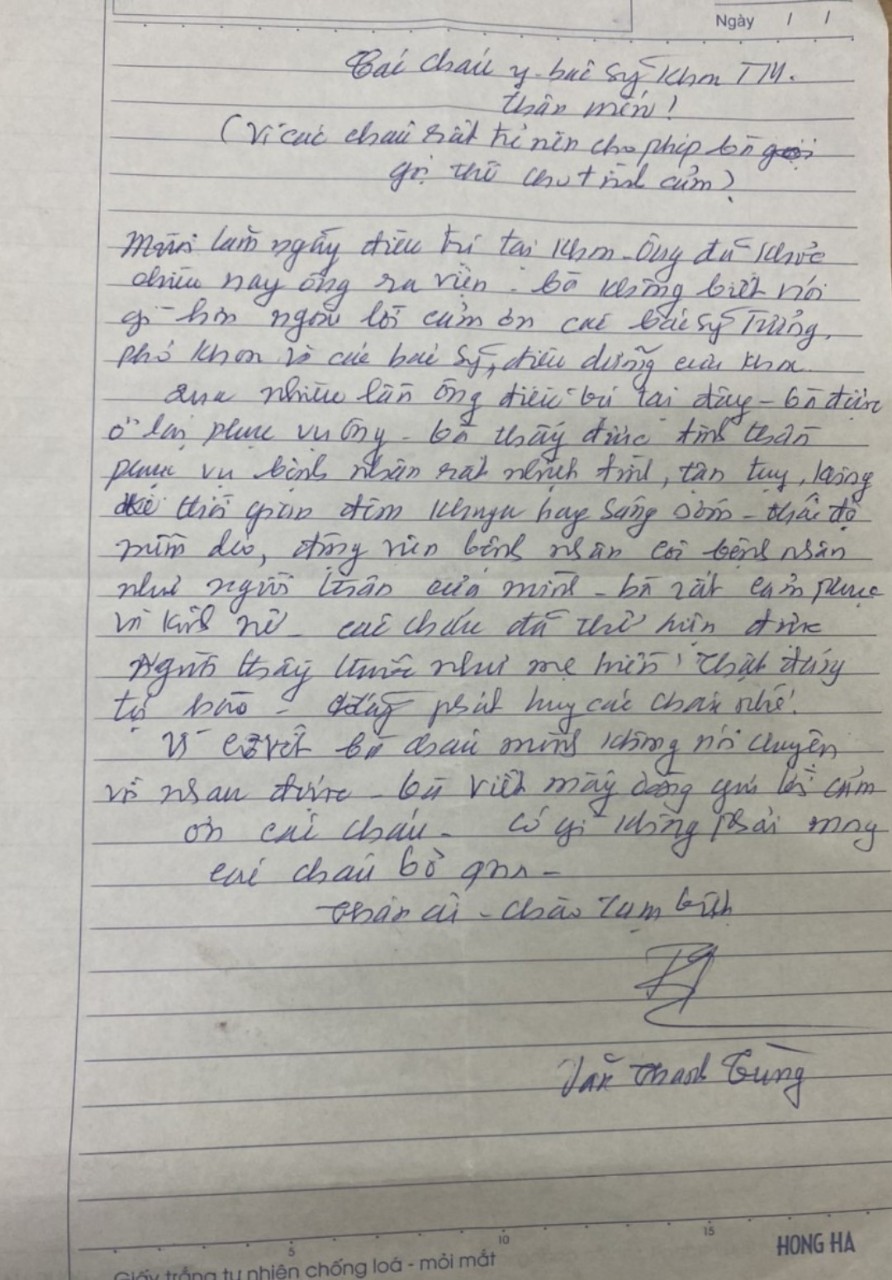 Ngày / /
Các cháu y bác sỹ khoa TM.
thân mến!
(Vì các cháu rất trẻ nên cho phép bà gọi
gọi thế cho tình cảm)
Mười lăm ngày điều trị tại khoa - Ông đã khỏe
chiều nay ông ra viện - bà không biết nói
gì hơn ngoài lời cảm ơn các bác sỹ Trưởng,
phó khoa và các bác sỹ, điều dưỡng của khoa.
Qua nhiều lần ông điều trị tại đây - bà được
ở lại phục vụ ông - bà thấy được tinh thần
phục vụ bệnh nhân rất nhiệt tình, tận tụy, không
kể thời gian đêm khuya hay sáng sớm - thái độ
mềm dẻo, động viên bệnh nhân coi bệnh nhân
như người thân của mình - bà rất cảm phục
và kính nể - các cháu đã thể hiện được
Người thầy thuốc như mẹ hiền! thật đáng
tự hào - phát huy các cháu nhé!
Vì covit bà cháu mình không nói chuyện
với nhau được - bà viết mấy dòng gửi lời cảm
ơn các cháu - có gì không phải mong
các cháu bỏ qua -
thân ái - chào tạm biệt
Thanh Tùng
5 10 15
HONG HA
Giấy trắng tự nhiên chống loá - mỏi mắt